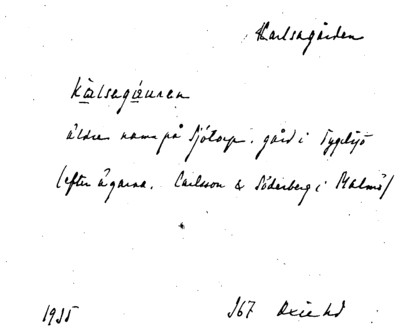 Karlsagården
kàlsagáuren
äldre namn på Sjötorp, gård i Tygelsjö
(efter ägarna, Carlsson & Söderberg i Malmö)
1935 367 Oxie hd